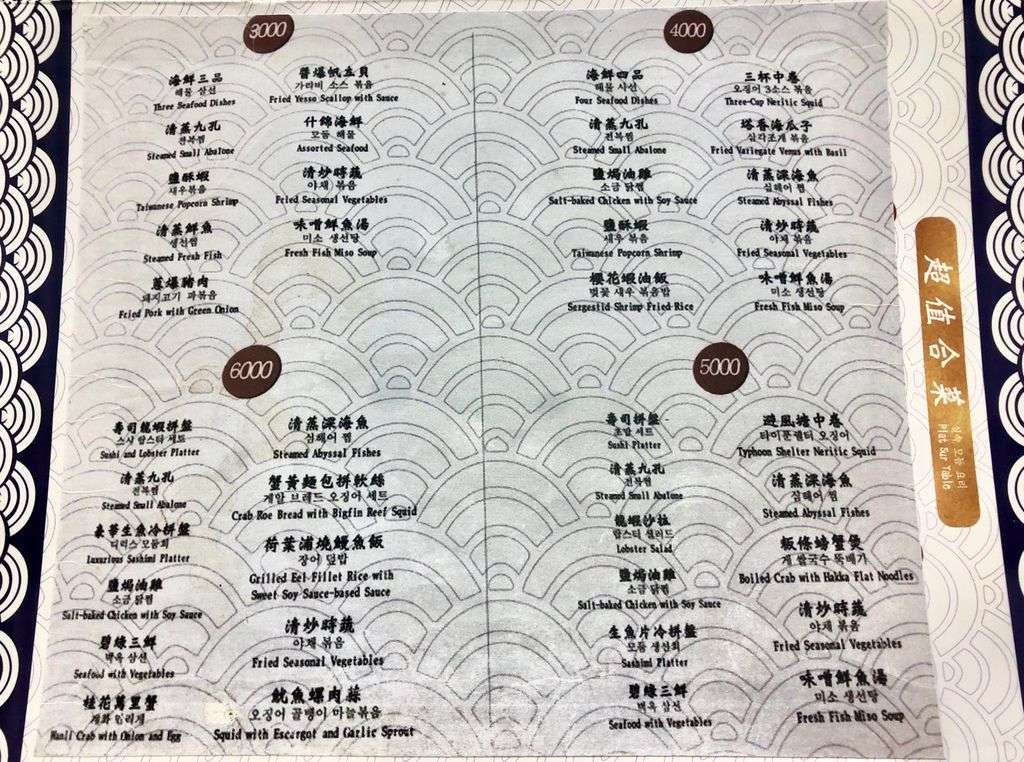 3000
海鮮三品
해물 삼선
Three Seafood Dishes
清蒸九孔
전복찜
Steamed Small Abalone
鹽酥蝦
새우볶음
Taiwanese Popcorn Shrimp
清蒸鮮魚
생선찜
Steamed Fresh Fish
蔥爆豬肉
돼지고기 파볶음
Fried Pork with Green Onion
醬爆帆立貝
가리비 소스 볶음
Fried Yesso Scallop with Sauce
什錦海鮮
모듬 해물
Assorted Seafood
清炒時蔬
야채 볶음
Fried Seasonal Vegetables
味噌鮮魚湯
미소 생선탕
Fresh Fish Miso Soup
4000
海鮮四品
해물 사선
Four Seafood Dishes
清蒸九孔
전복찜
Steamed Small Abalone
鹽焗油雞
소금 닭찜
Salt-baked Chicken with Soy Sauce
鹽酥蝦
새우 볶음
Taiwanese Popcorn Shrimp
櫻花蝦油飯
벚꽃 새우 볶음밥
Sergestid Shrimp Fried Rice
三杯中卷
오징어 3소스 볶음
Three-Cup Neritic Squid
塔香海瓜子
실각조개 볶음
Fried Variegate Venus with Basil
清蒸深海魚
심해어 찜
Steamed Abyssal Fishes
清炒時蔬
야채 볶음
Fried Seasonal Vegetables
味噌鮮魚湯
미소 생선탕
Fresh Fish Miso Soup
6000
壽司龍蝦拼盤
스시 랍스타 세트
Sushi and Lobster Platter
清蒸九孔
전복찜
Steamed Small Abalone
豪華生魚冷拼盤
디럭스 모듬회
Luxurious Sashimi Platter
鹽焗油雞
소금 닭찜
Salt-baked Chicken with Soy Sauce
碧綠三鮮
벽옥 삼선
Seafood with Vegetables
桂花萬里蟹
계화 만리게
Wanli Crab with Onion and Egg
清蒸深海魚
심해어 찜
Steamed Abyssal Fishes
蟹黃麵包拼軟絲
게알 브레드 오징어 세트
Crab Roe Bread with Bigfin Reef Squid
荷葉浦燒鰻魚飯
장어 덮밥
Grilled Eel Fillet Rice with
Sweet Soy Sauce-based Sauce
清炒時蔬
야채 볶음
Fried Seasonal Vegetables
魷魚螺肉蒜
오징어 골뱅이 마늘볶음
Squid with Escargot and Garlic Sprout
5000
壽司拼盤
초밥 세트
Sushi Platter
清蒸九孔
전복찜
Steamed Small Abalone
龍蝦沙拉
랍스타 샐러드
Lobster Salad
鹽焗油雞
소금 닭찜
Salt-baked Chicken with Soy Sauce
生魚片冷拼盤
모듬 생선회
Sashimi Platter
碧綠三鮮
벽옥 삼선
Seafood with Vegetables
避風塘中卷
타이푼쉘터 오징어
Typhoon Shelter Neritic Squid
清蒸深海魚
심해어 찜
Steamed Abyssal Fishes
粄條螃蟹煲
게 쌀국수 뚝배기
Boiled Crab with Hakka Flat Noodles
清炒時蔬
야채 볶음
Fried Seasonal Vegetables
味噌鮮魚湯
미소 생선탕
Fresh Fish Miso Soup
超值合菜
실속 모듬 요리
Plat Sur Table